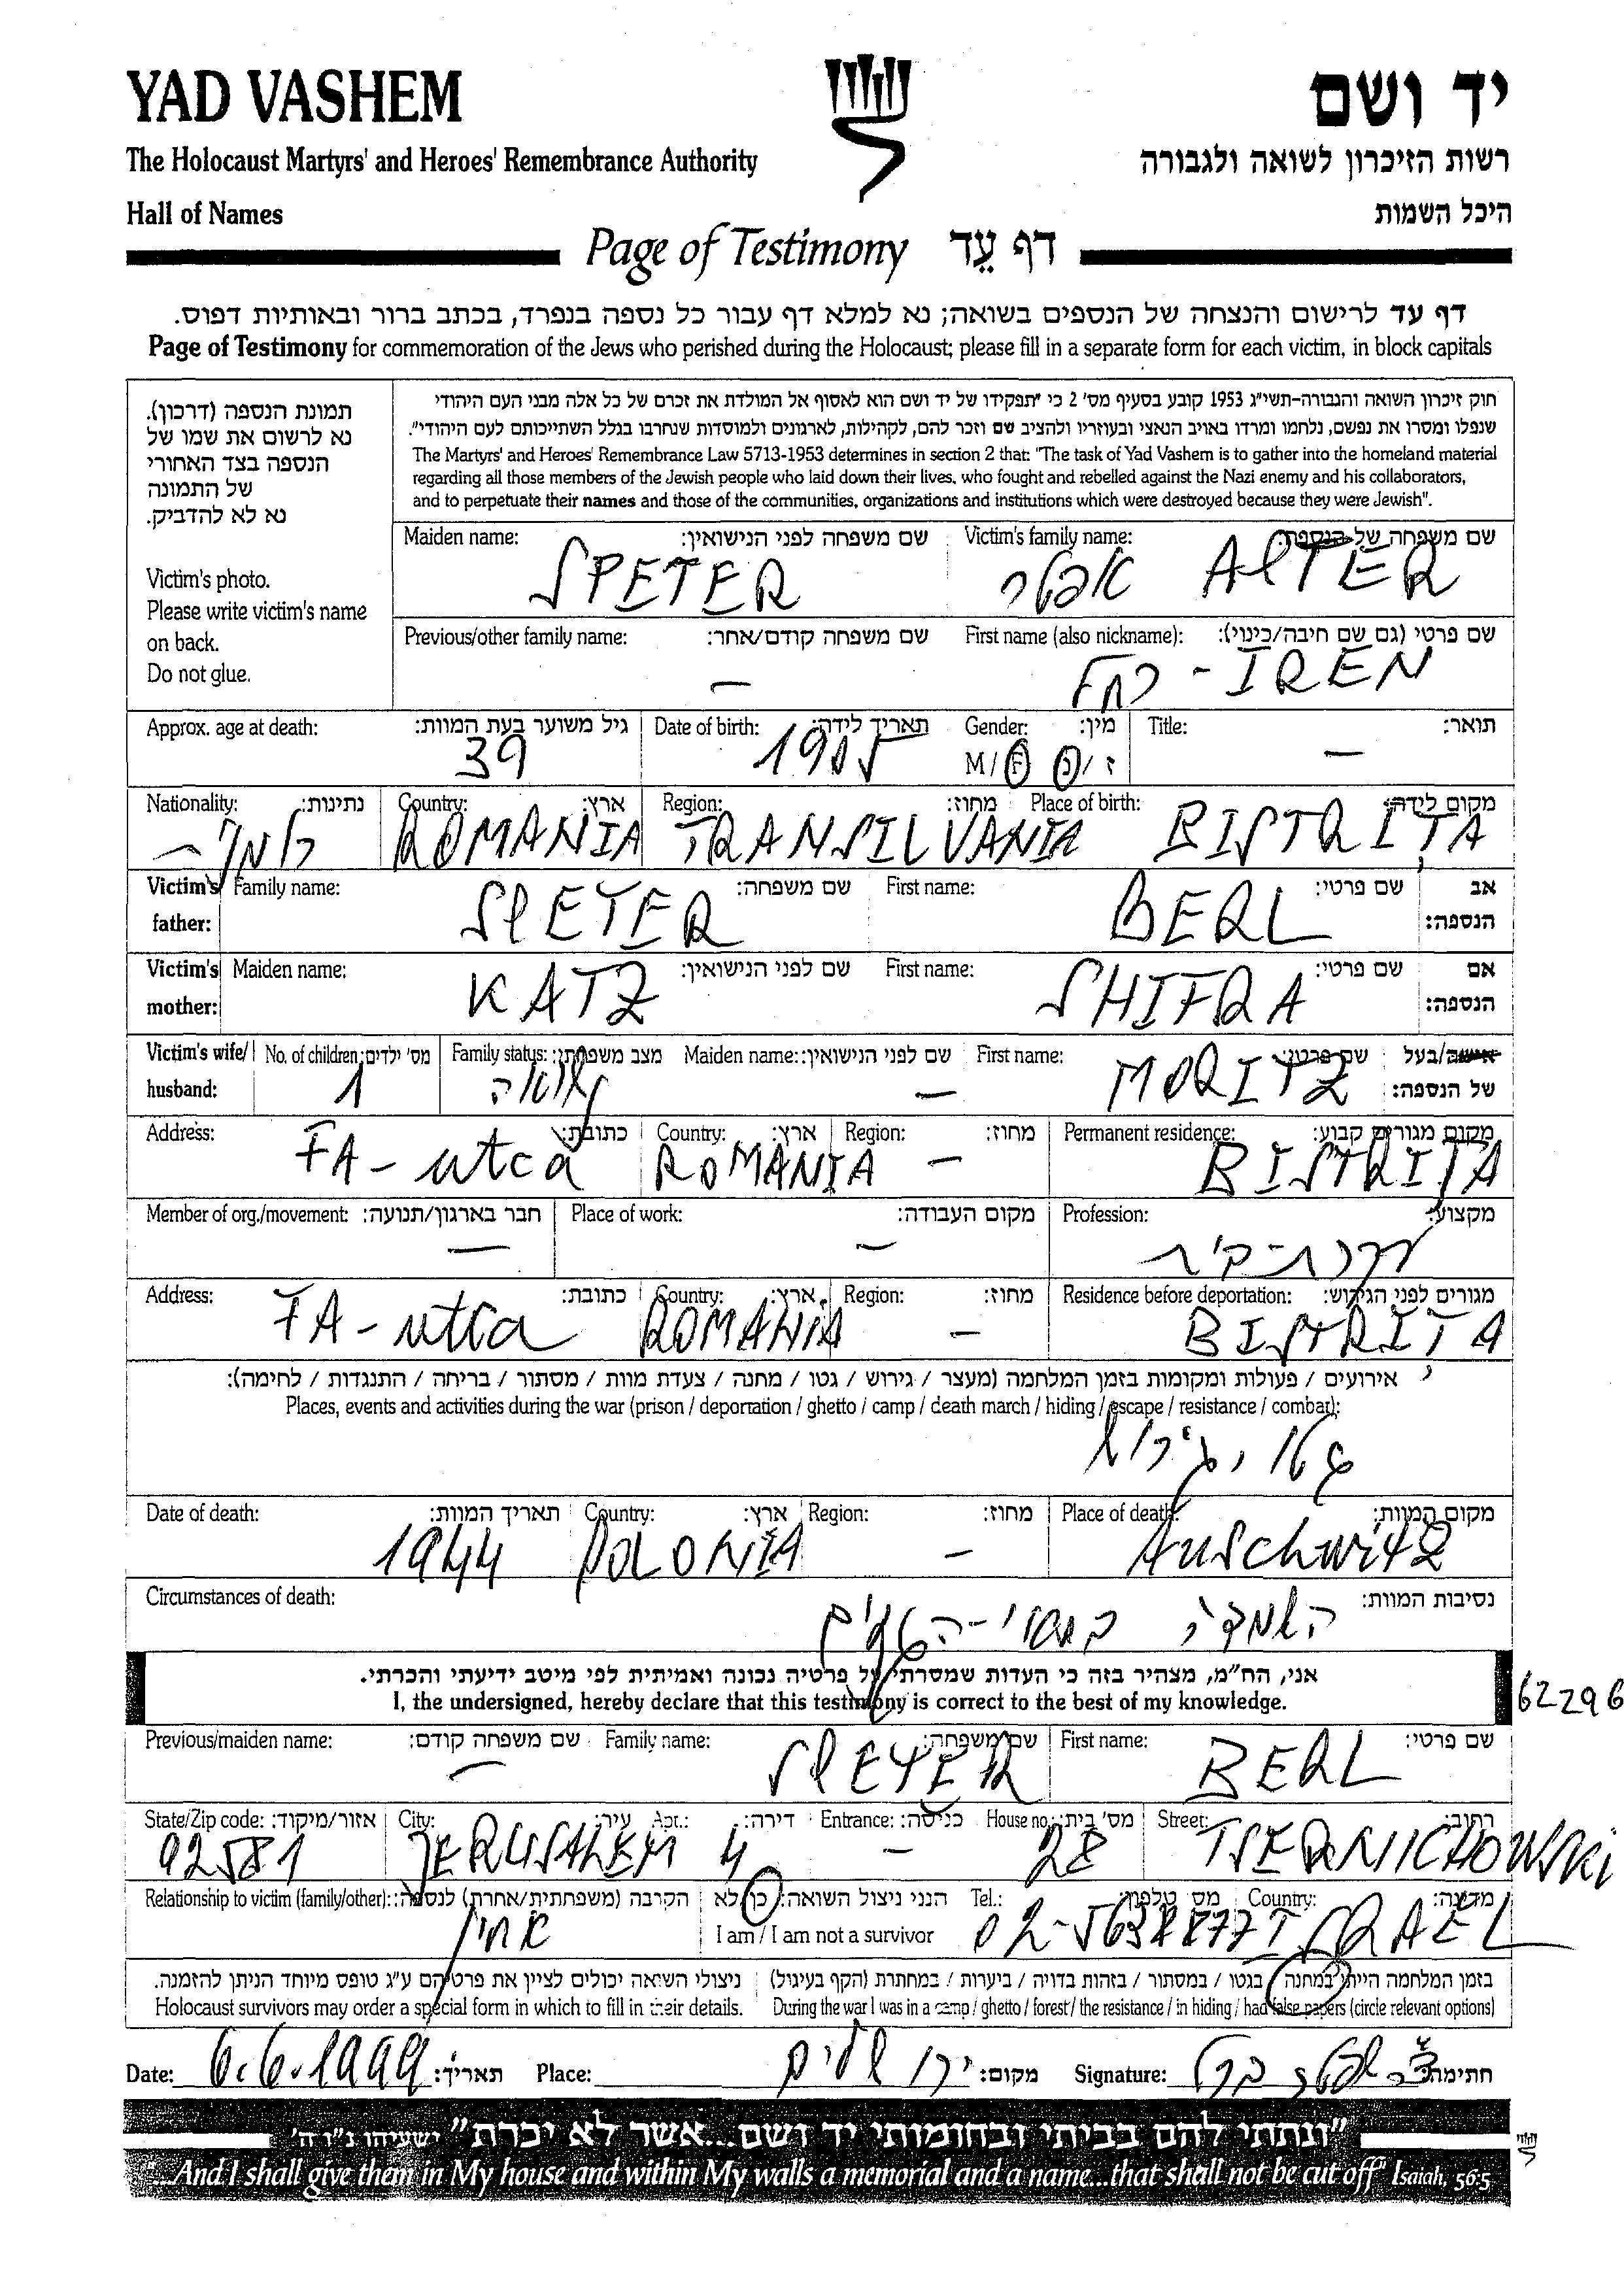 YAD VASHEM
יד ושם
The Holocaust Martyrs' and Heroes' Remembrance Authority
רשות הזיכרון לשואה ולגבורה
Hall of Names
היכל השמות
Page of Testimony דף עֵד
דף עד לרישום והנצחה של הנספים בשואה; נא למלא דף עבור כל נספה בנפרד, בכתב ברור ובאותיות דפוס.
Page of Testimony for commemoration of the Jews who perished during the Holocaust; please fill in a separate form for each victim, in block capitals
תמונת הנספה (דרכון).
נא לרשום את שמו של
הנספה בצד האחורי
של התמונה
נא לא להדביק.
Victim's photo.
Please write victim's name
on back.
Do not glue.
חוק זיכרון השואה והגבורה-תשי"ג 1953 קובע בסעיף מס' 2 כי "תפקידו של יד ושם הוא לאסוף אל המולדת את זכרם של כל אלה מבני העם היהודי
שנפלו ומסרו את נפשם, נלחמו ומרדו באויב הנאצי ובעוזריו ולהציב שם וזכר להם, לקהילות, לארגונים ולמוסדות שנחרבו בגלל השתייכותם לעם היהודי".
The Martyrs' and Heroes' Remembrance Law 5713-1953 determines in section 2 that: "The task of Yad Vashem is to gather into the homeland material
regarding all those members of the Jewish people who laid down their lives, who fought and rebelled against the Nazi enemy and his collaborators,
and to perpetuate their names and those of the communities, organizations and institutions which were destroyed because they were Jewish".
Maiden name: שם משפחה לפני הנישואין: Victim's family name: שם משפחה של הנספה:
SPETER ALTER
Previous/other family name: שם משפחה קודם/אחר: First name (also nickname): שם פרטי (גם שם חיבה/כינוי):
— רחל - IREN
Approx. age at death: גיל משוער בעת המוות: Date of birth: תאריך לידה: Gender: מין: Title: תואר:
39 1905 M/F ז/נ —
Nationality: נתינות: Country: ארץ: Region: מחוז: Place of birth: מקום לידה:
ROMANIA TRANSILVANIA BISTRIȚA
Victim's father: Family name: שם משפחה: First name: שם פרטי: אב הנספה:
SPETER BERL
Victim's mother: Maiden name: שם לפני הנישואין: First name: שם פרטי: אם הנספה:
KATZ SHIFRA
Victim's wife/husband: No. of children: מס' ילדים: Family status: מצב משפחתי: Maiden name: שם לפני הנישואין: First name: שם פרטי: אישה/בעל של הנספה:
1 נשואה — MORITZ
Address: כתובת: Country: ארץ: Region: מחוז: Permanent residence: מקום מגורים קבוע:
FA-utca ROMANIA — BISTRIȚA
Member of org./movement: חבר בארגון/תנועה: Place of work: מקום העבודה: Profession: מקצוע:
— — עקרת-בית
Address: כתובת: Country: ארץ: Region: מחוז: Residence before deportation: מגורים לפני הגירוש:
FA-utca ROMANIA — BISTRIȚA
אירועים / פעולות ומקומות בזמן המלחמה (מעצר / גירוש / גטו / מחנה / צעדת מוות / מסתור / בריחה / התנגדות / לחימה):
Places, events and activities during the war (prison / deportation / ghetto / camp / death march / hiding / escape / resistance / combat):
גטו, גירוש
Date of death: תאריך המוות: Country: ארץ: Region: מחוז: Place of death: מקום המוות:
1944 POLONIA — Auschwitz
Circumstances of death: נסיבות המוות:
אני, הח"מ, מצהיר בזה כי העדות שמסרתי על פרטיה נכונה ואמיתית לפי מיטב ידיעתי והכרתי.
I, the undersigned, hereby declare that this testimony is correct to the best of my knowledge.
62296
Previous/maiden name: שם משפחה קודם: Family name: שם משפחה: First name: שם פרטי:
— SPETER BERL
State/Zip code: אזור/מיקוד: City: עיר: Apt.: דירה: Entrance: כניסה: House no.: מס' בית: Street: רחוב:
92581 JERUSALEM 4 — 28 TSERNICHOWSKI
Relationship to victim (family/other): הקרבה (משפחתית/אחרת) לנספה: הנני ניצול השואה: כן/לא Tel.: מס' טלפון: Country: מדינה:
אחיין I am / I am not a survivor 02-5638877 ISRAEL
ניצולי השואה יכולים לציין את פרטיהם ע"ג טופס מיוחד הניתן להזמנה. בזמן המלחמה הייתי במחנה / בגטו / במסתור / בזהות בדויה / ביערות / במחתרת (הקף בעיגול)
Holocaust survivors may order a special form in which to fill in their details. During the war I was in a camp / ghetto / forest / the resistance / in hiding / had false papers (circle relevant options)
Date: 6.6.1999 תאריך: Place: ירושלים מקום: Signature: חתימה:
"ונתתי להם בביתי ובחומותי יד ושם...אשר לא יכרת" ישעיהו נ"ו ה'
"...And I shall give them in My house and within My walls a memorial and a name...that shall not be cut off" Isaiah, 56:5